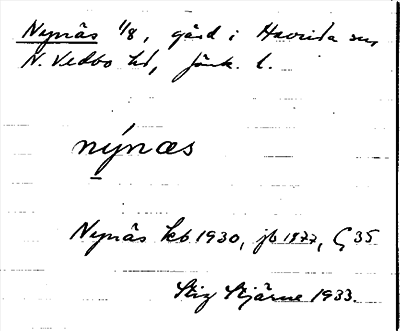 Nynäs 1/8, gård i Haurida sn
N. Vedbo hd, Jönk. l.
nýnæs
Nynäs kb 1930, jb 1877, G 35
Stig Stjärne 1933.